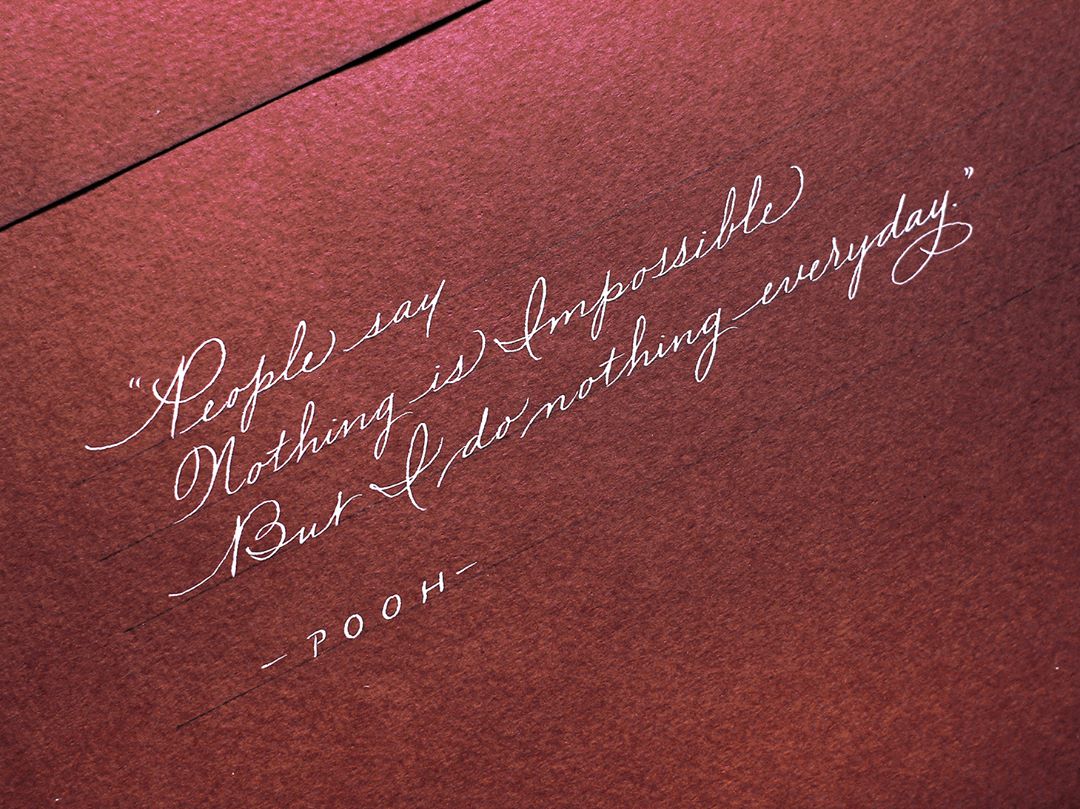 “People say
Nothing is Impossible
But I do nothing everyday.”
– POOH –